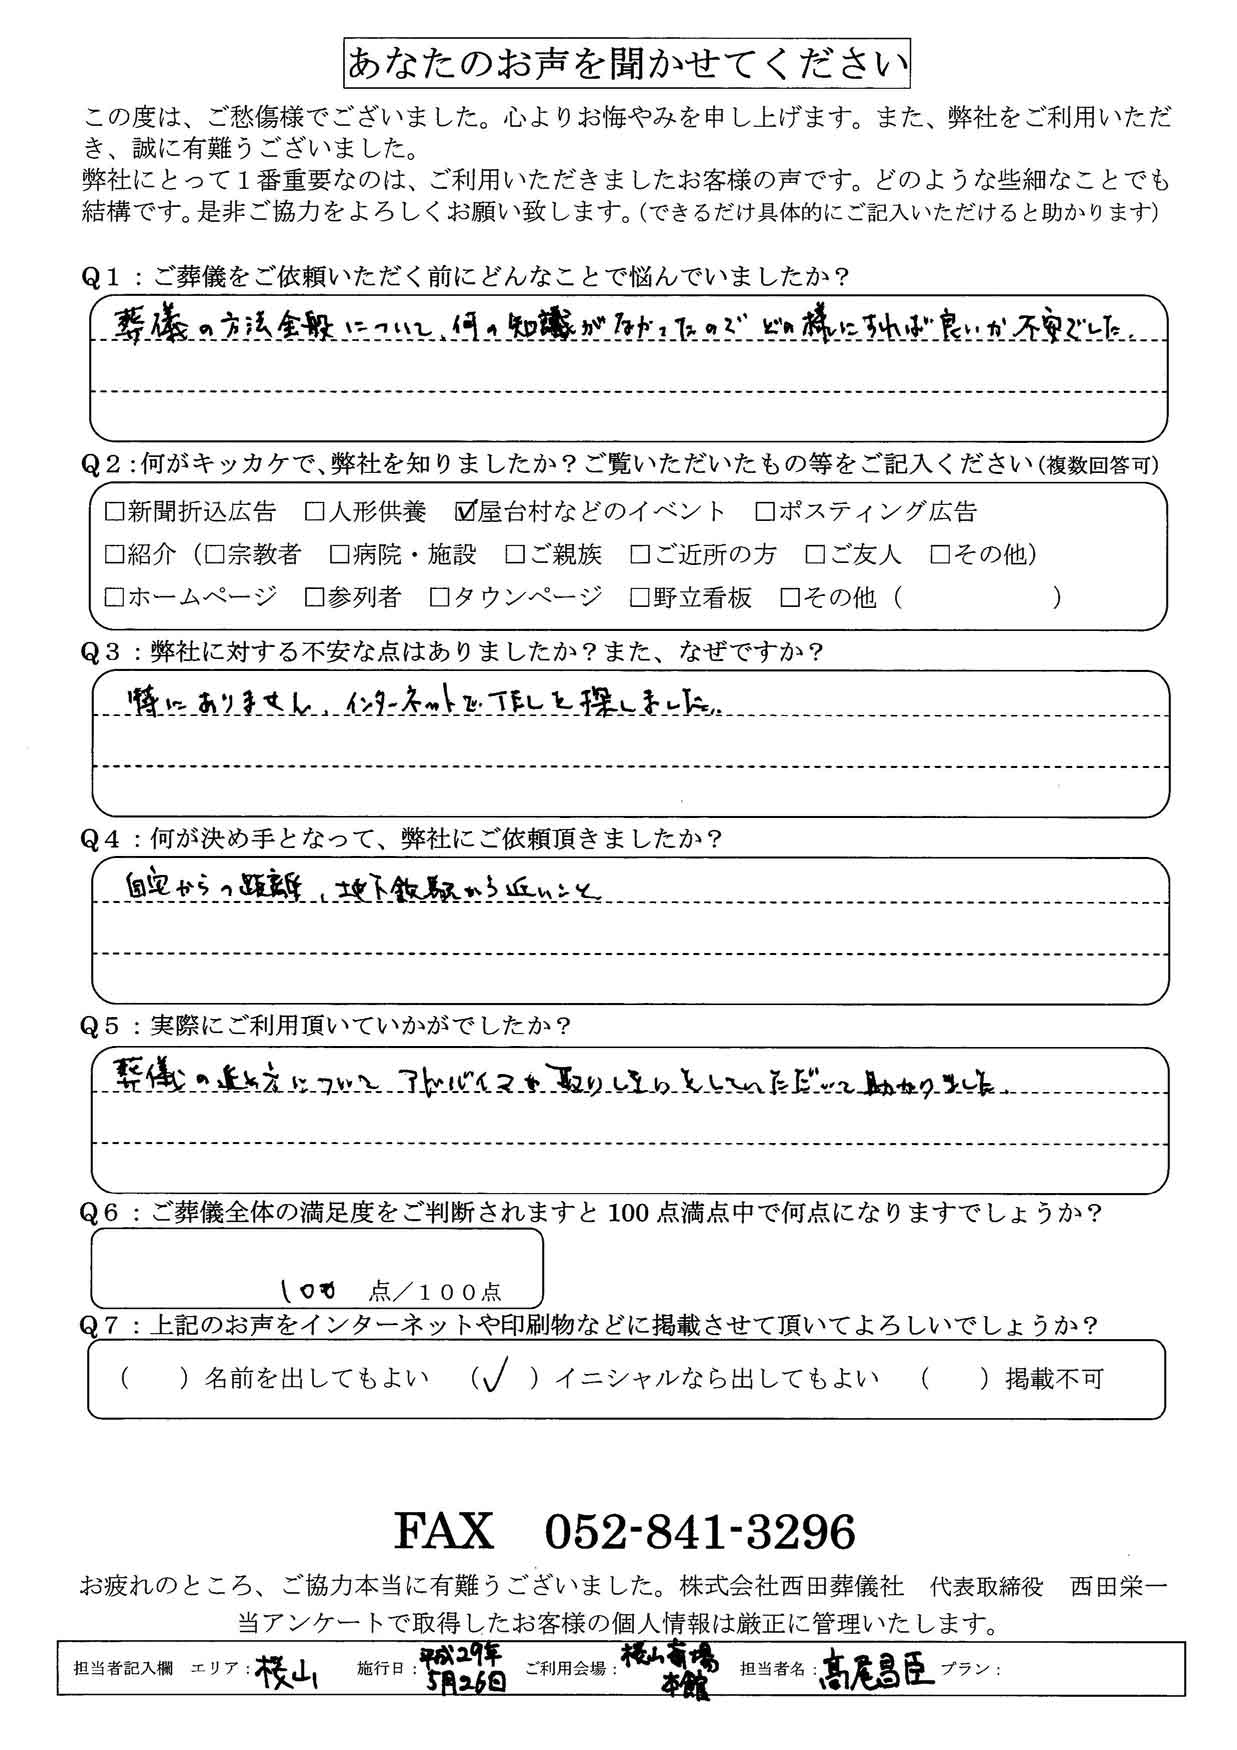 あなたのお声を聞かせてください
この度は、ご愁傷様でございました。心よりお悔やみを申し上げます。また、弊社をご利用いただ
き、誠に有難うございました。
弊社にとって1番重要なのは、ご利用いただきましたお客様の声です。どのような些細なことでも
結構です。是非ご協力をよろしくお願い致します。(できるだけ具体的にご記入いただけると助かります)
Q1:ご葬儀をご依頼いただく前にどんなことで悩んでいましたか?
葬儀の方法全般について、何の知識がなかったのでどの様にすれば良いか不安でした。
Q2:何がキッカケで、弊社を知りましたか?ご覧いただいたもの等をご記入ください(複数回答可)
□新聞折込広告 □人形供養 ☑屋台村などのイベント □ポスティング広告
□紹介(□宗教者 □病院・施設 □ご親族 □ご近所の方 □ご友人 □その他)
□ホームページ □参列者 □タウンページ □野立看板 □その他( )
Q3:弊社に対する不安な点はありましたか?また、なぜですか?
特にありません。インターネットでTELを探しました。
Q4:何が決め手となって、弊社にご依頼頂きましたか?
自宅からの距離、地下鉄駅から近いこと
Q5:実際にご利用頂いていかがでしたか?
葬儀の進め方について アドバイスや取りしきりをしていただいて助かりました。
Q6:ご葬儀全体の満足度をご判断されますと100点満点中で何点になりますでしょうか?
100 点/100点
Q7:上記のお声をインターネットや印刷物などに掲載させて頂いてよろしいでしょうか?
( )名前を出してもよい (✓)イニシャルなら出してもよい ( )掲載不可
FAX 052-841-3296
お疲れのところ、ご協力本当に有難うございました。株式会社西田葬儀社 代表取締役 西田栄一
当アンケートで取得したお客様の個人情報は厳正に管理いたします。
担当者記入欄 エリア:桜山 施行日:平成29年5月26日 ご利用会場:桜山斎場本館 担当者名:高尾昌臣 プラン: